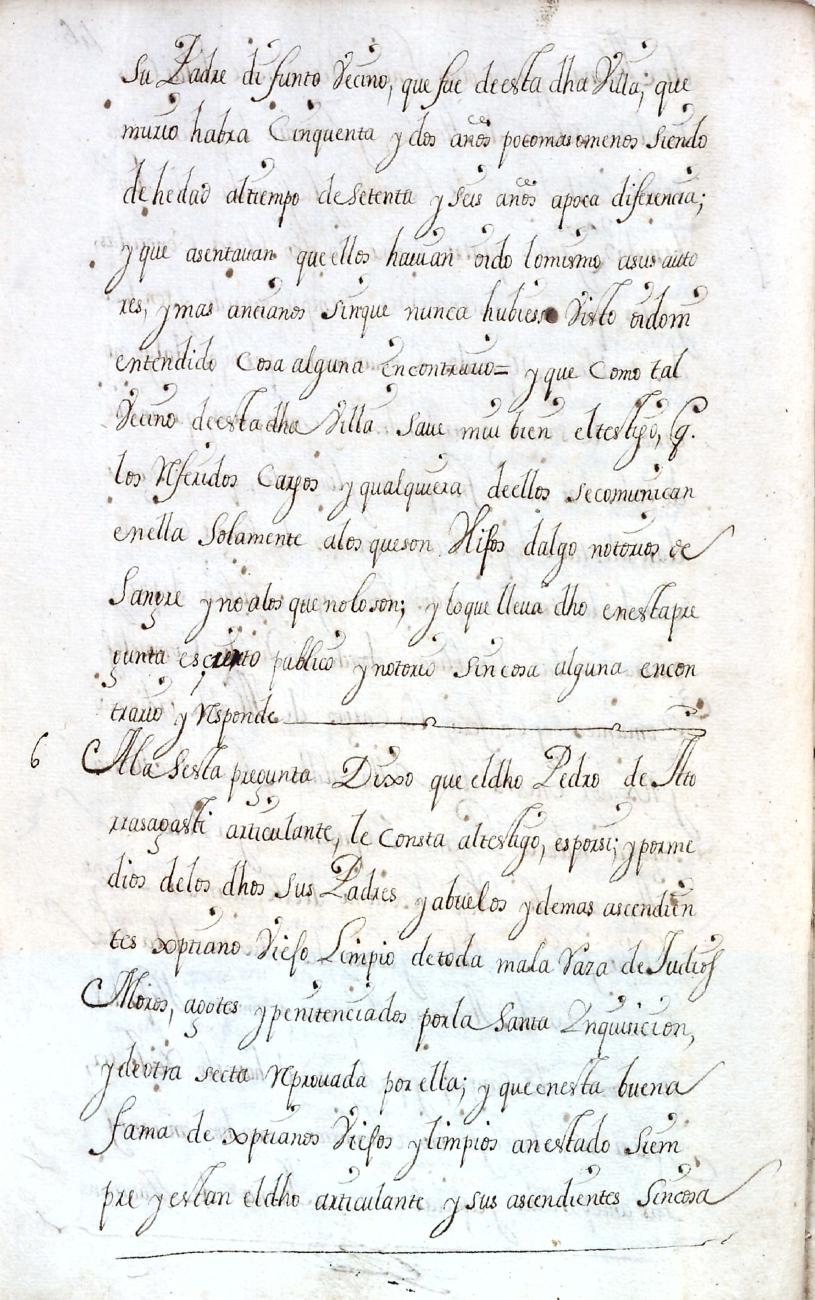 su Padre difunto Vecino, que fue deesta dha Villa; que
murio habra Cinquenta y dos años pocomasomenos siendo
dehedad altiempo desetenta y seis años apoca diferencia;
y que asentauan queellos hauian oido lomismo asus auto
res, y mas ancianos sinque nunca hubiesse Visto oidoni
entendido Cosa alguna encontrario= y que Como tal
Vecino deestadha Villa saue mui bien eltestigo, q.
los Referidos Cargos y qualquiera deellos secomunican
enella solamente alos queson Hijos dalgo notorios de
sangre y noalos quenoloson; y loque lleua dho enestapre
gunta escierto publico y notorio sincosa alguna encon
trario y Responde
6 Ala Sesta pregunta Dixo que eldho Pedro de Ato
rrasagasti articulante, le Consta altestigo, esporsi; y porme
dios delos dhos sus Padres y abuelos y demas ascendien
tes xptiano Viejo Limpio detoda mala Raza de Judios
Moros, agotes y penitenciados porla Santa Inquisicion,
y deotra secta Reprouada por ella; y queenesta buena
fama de xptianos Viejos y limpios anestado siem
pre y estan eldho articulante y sus ascendientes sincosa